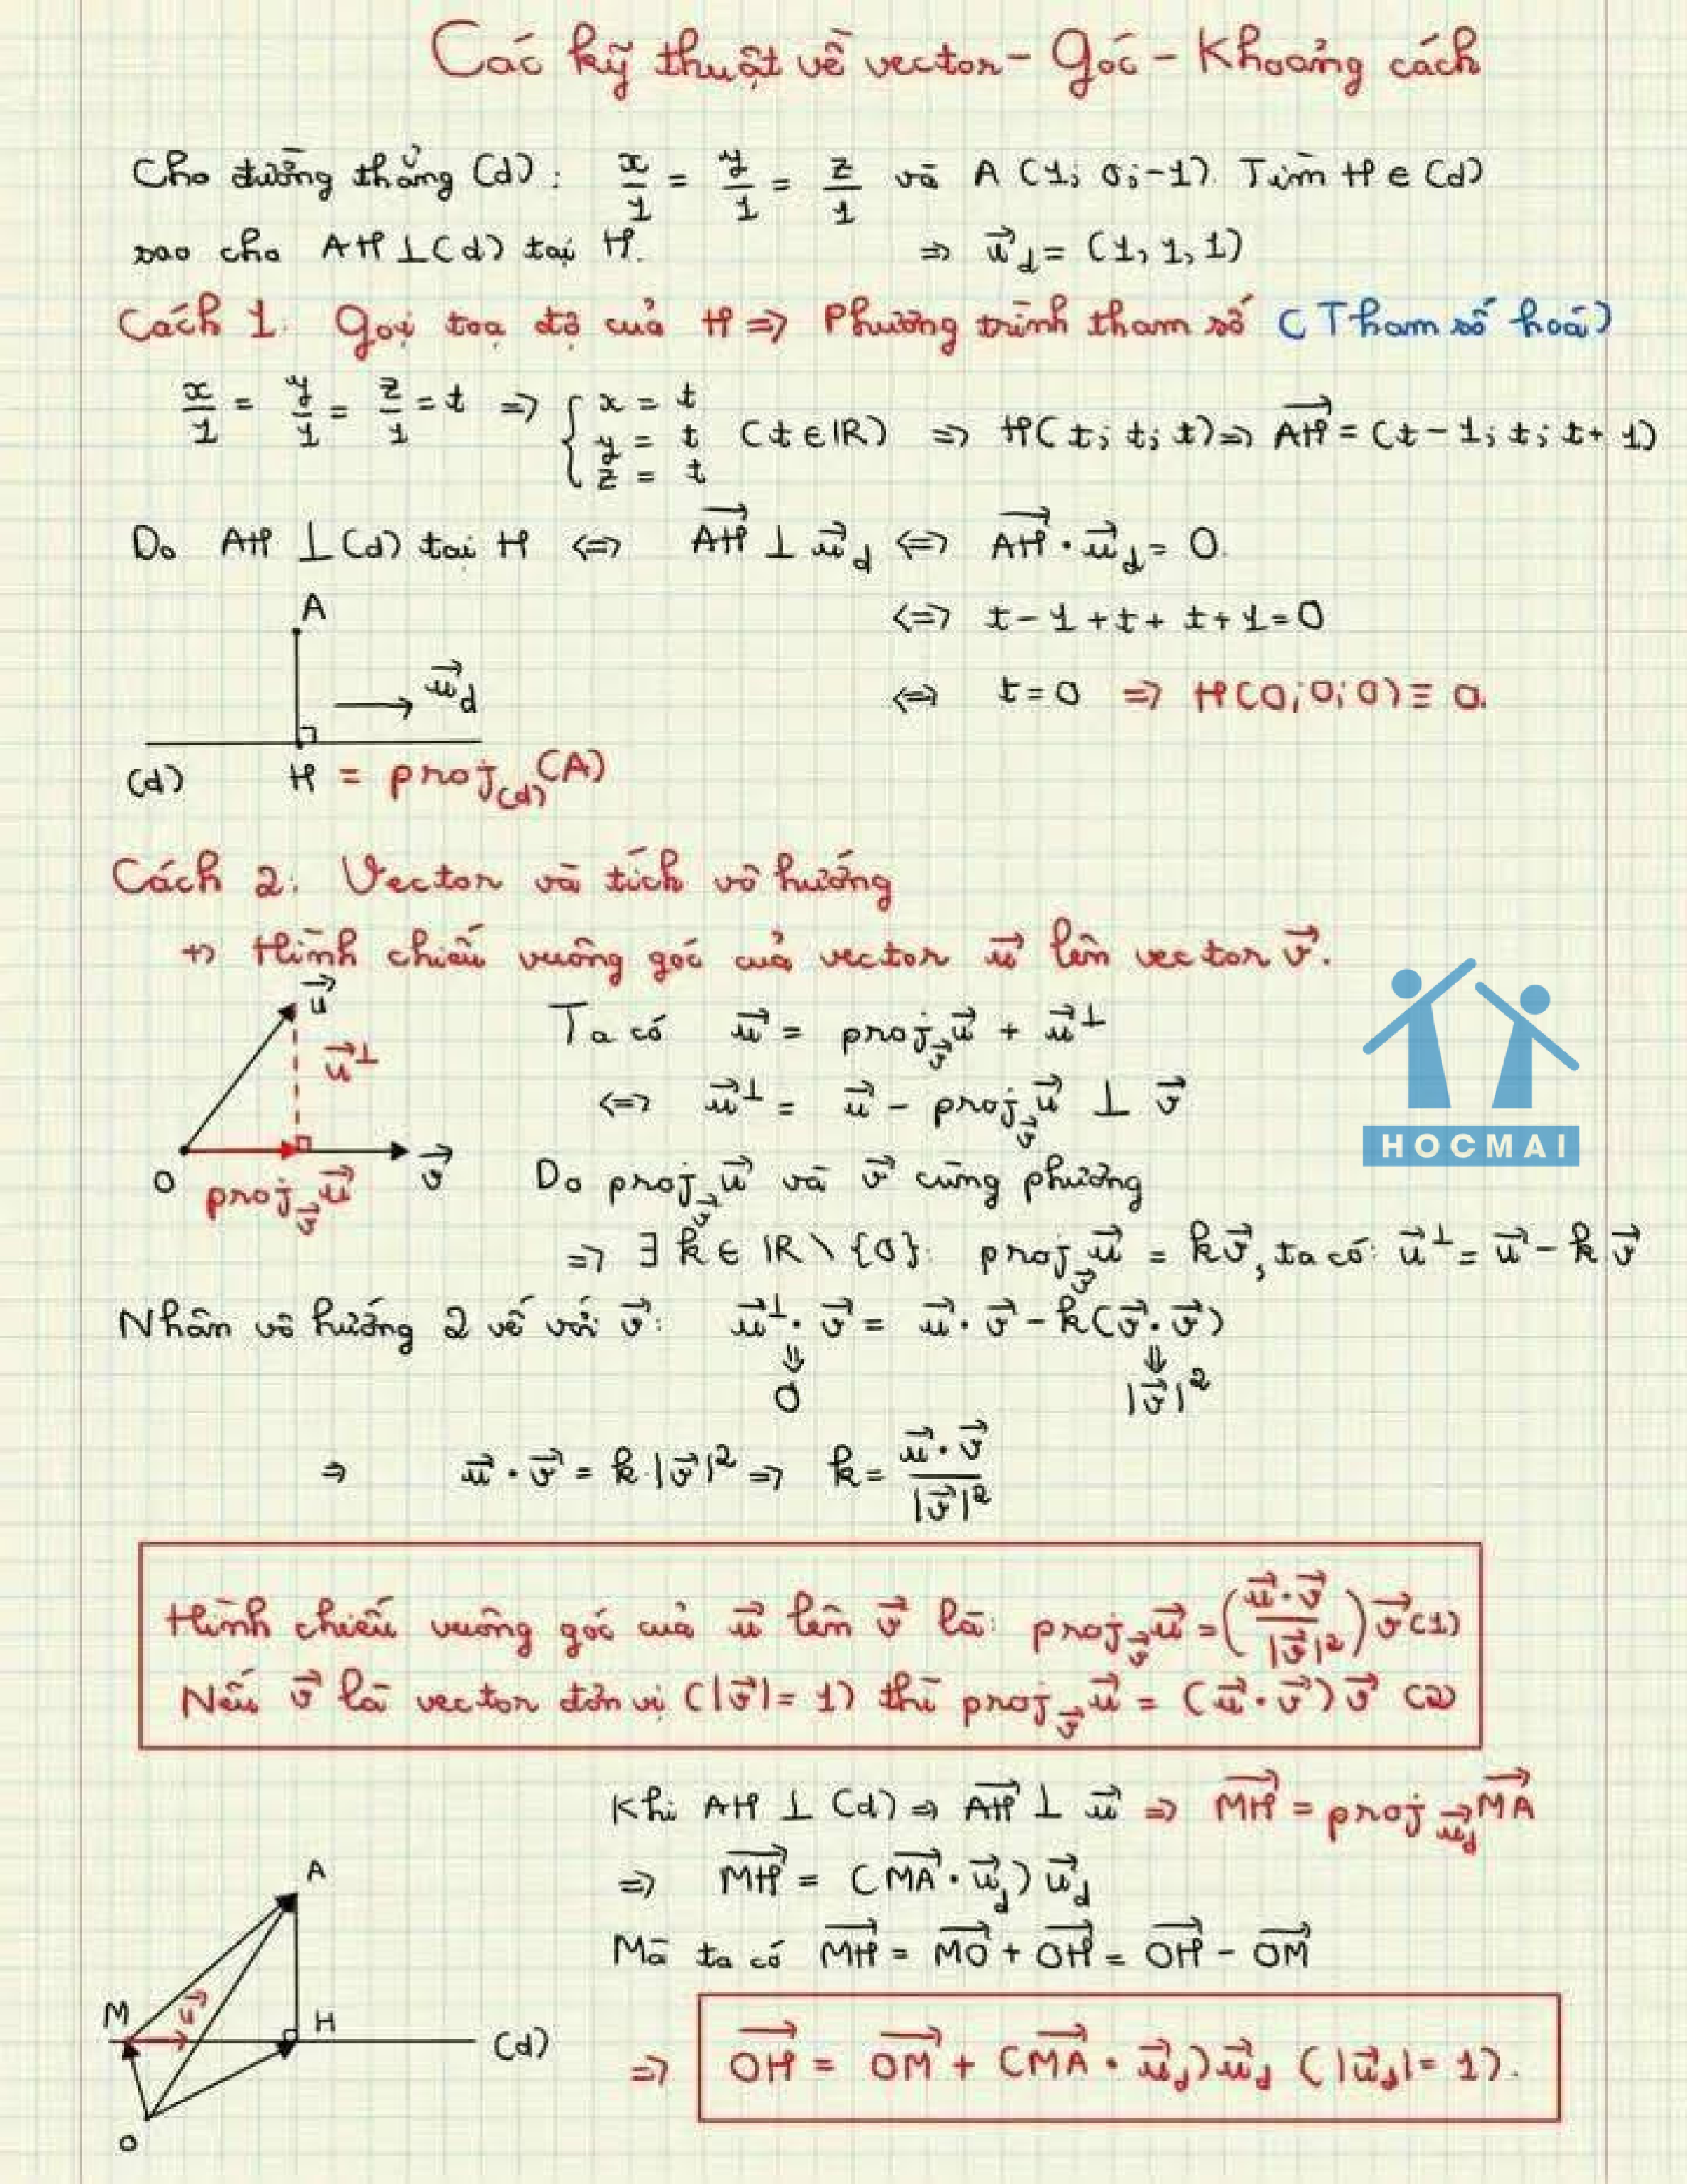 Các kỹ thuật về vector - Góc - Khoảng cách
Cho đường thẳng (d): x/1 = y/1 = z/1 và A(1; 0; -1). Tìm H ∈ (d)
sao cho AH ⊥ (d) tại H. ⇒ u⃗_d = (1, 1, 1)
Cách 1. Gọi toạ độ của H ⇒ Phương trình tham số (Tham số hoá)
x/1 = y/1 = z/1 = t ⇒ { x = t
y = t (t ∈ ℝ) ⇒ H(t; t; t) ⇒ AH⃗ = (t - 1; t; t + 1)
z = t
Do AH ⊥ (d) tại H ⇔ AH⃗ ⊥ u⃗_d ⇔ AH⃗ · u⃗_d = 0.
⇔ t - 1 + t + t + 1 = 0
⇔ t = 0 ⇒ H(0; 0; 0) ≡ O.
A
u⃗_d
(d) H = proj_(d)(A)
Cách 2. Vector và tích vô hướng
+) Hình chiếu vuông góc của vector u⃗ lên vector v⃗.
u⃗
u⃗^⊥
O
proj_v⃗ u⃗
v⃗
Ta có u⃗ = proj_v⃗ u⃗ + u⃗^⊥
⇔ u⃗^⊥ = u⃗ - proj_v⃗ u⃗ ⊥ v⃗
HOCMAI
Do proj_v⃗ u⃗ và v⃗ cùng phương
⇒ ∃ k ∈ ℝ \ {0}: proj_v⃗ u⃗ = kv⃗, ta có: u⃗^⊥ = u⃗ - kv⃗
Nhân vô hướng 2 vế với v⃗: u⃗^⊥ · v⃗ = u⃗ · v⃗ - k(v⃗ · v⃗)
⇓ ⇓
0 |v⃗|²
⇒ u⃗ · v⃗ = k.|v⃗|² ⇒ k = (u⃗ · v⃗)/|v⃗|²
Hình chiếu vuông góc của u⃗ lên v⃗ là: proj_v⃗ u⃗ = ((u⃗ · v⃗)/|v⃗|²)v⃗ (1)
Nếu v⃗ là vector đơn vị (|v⃗| = 1) thì proj_v⃗ u⃗ = (u⃗ · v⃗)v⃗ (2)
Khi AH ⊥ (d) ⇒ AH⃗ ⊥ u⃗ ⇒ MH⃗ = proj_u⃗_d MA⃗
⇒ MH⃗ = (MA⃗ · u⃗_d)u⃗_d
Mà ta có MH⃗ = MO⃗ + OH⃗ = OH⃗ - OM⃗
⇒ OH⃗ = OM⃗ + (MA⃗ · u⃗_d)u⃗_d (|u⃗_d| = 1).
A
M
u⃗
H
(d)
O